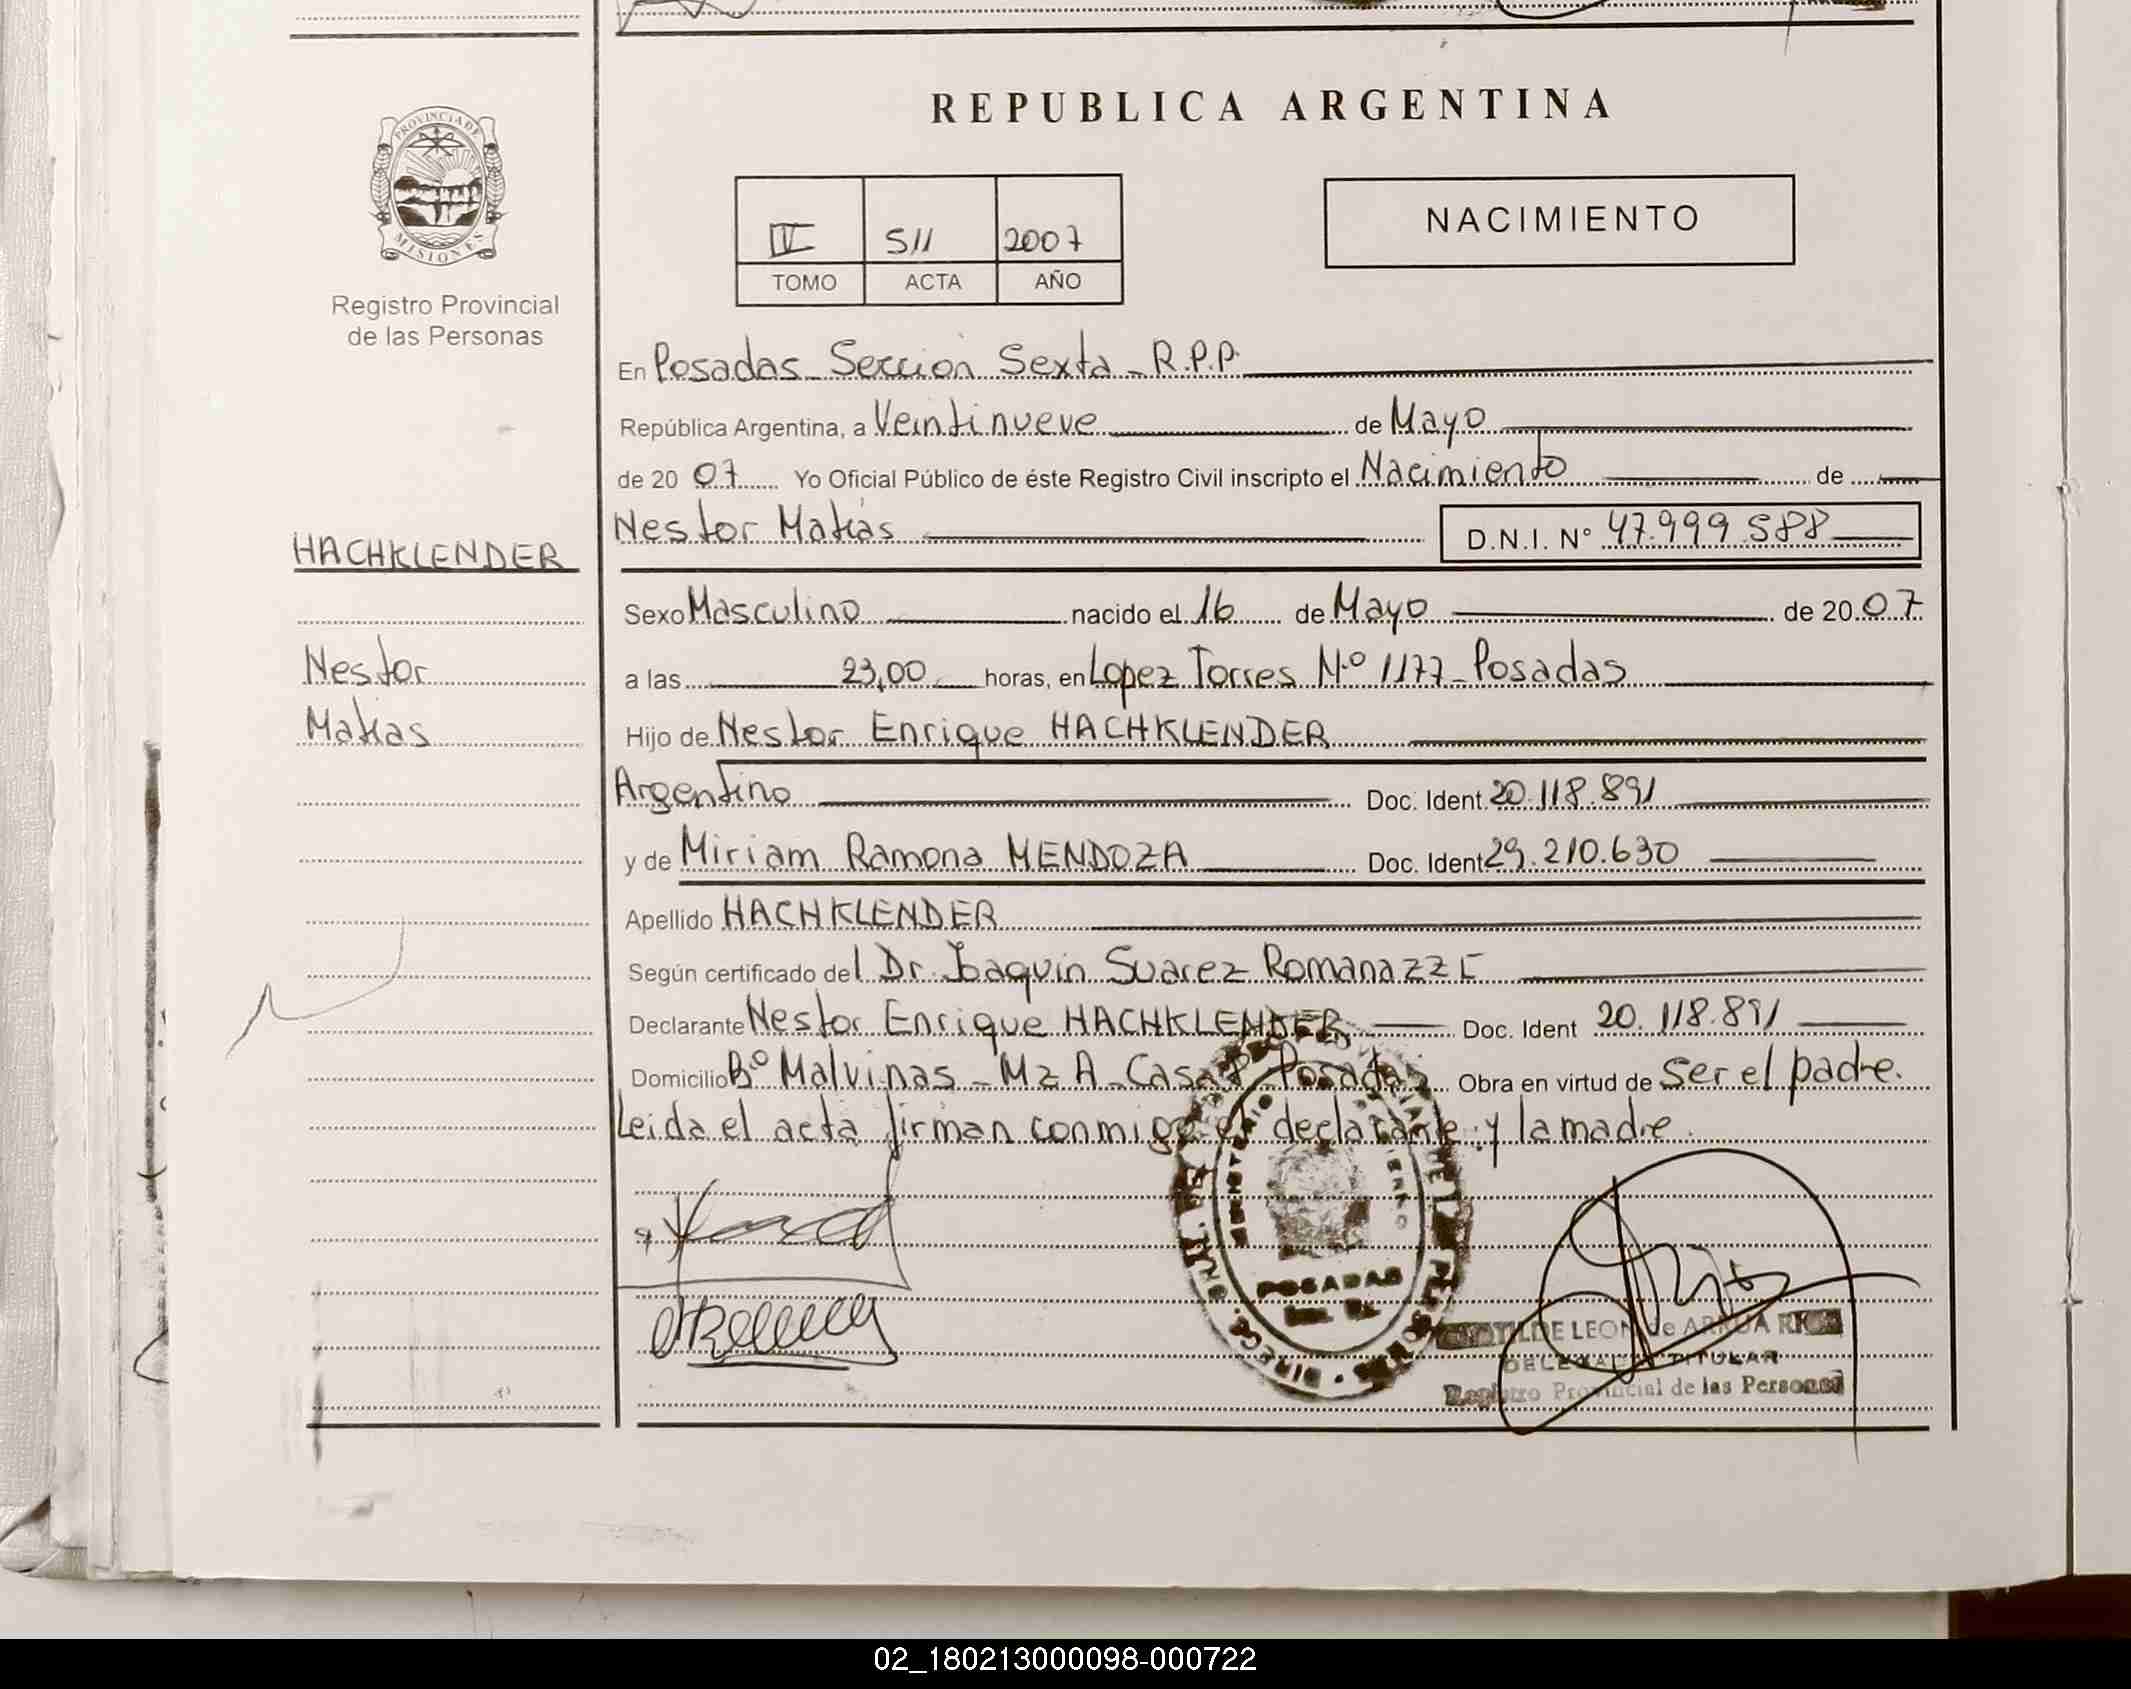 PROVINCIA DE
MISIONES
Registro Provincial
de las Personas
HACHKLENDER
Nestor
Matias
REPUBLICA ARGENTINA
IV 511 2007
TOMO ACTA AÑO
NACIMIENTO
En Posadas - Sección Sexta - R.P.P.
República Argentina, a Veintinueve de Mayo
de 20 07 Yo Oficial Público de éste Registro Civil inscripto el Nacimiento de
Nestor Matias D.N.I. N° 47.999.588
Sexo Masculino nacido el 16 de Mayo de 20 07
a las 23,00 horas, en Lopez Torres N.° 1177 - Posadas
Hijo de Nestor Enrique HACHKLENDER
Argentino Doc. Ident. 20.118.891
y de Miriam Ramona MENDOZA Doc. Ident 29.210.630
Apellido HACHKLENDER
Según certificado del Dr. Joaquin Suarez Romanazzi
Declarante Nestor Enrique HACHKLENDER Doc. Ident 20.118.891
Domicilio B.° Malvinas - Mz A - Casa Posadas Obra en virtud de Ser el padre.
Leida el acta firman conmigo el declarante y la madre.
POSADAS
DE LEON de ARRUA
DELEGADA TITULAR
Registro Provincial de las Personas
02_180213000098-000722